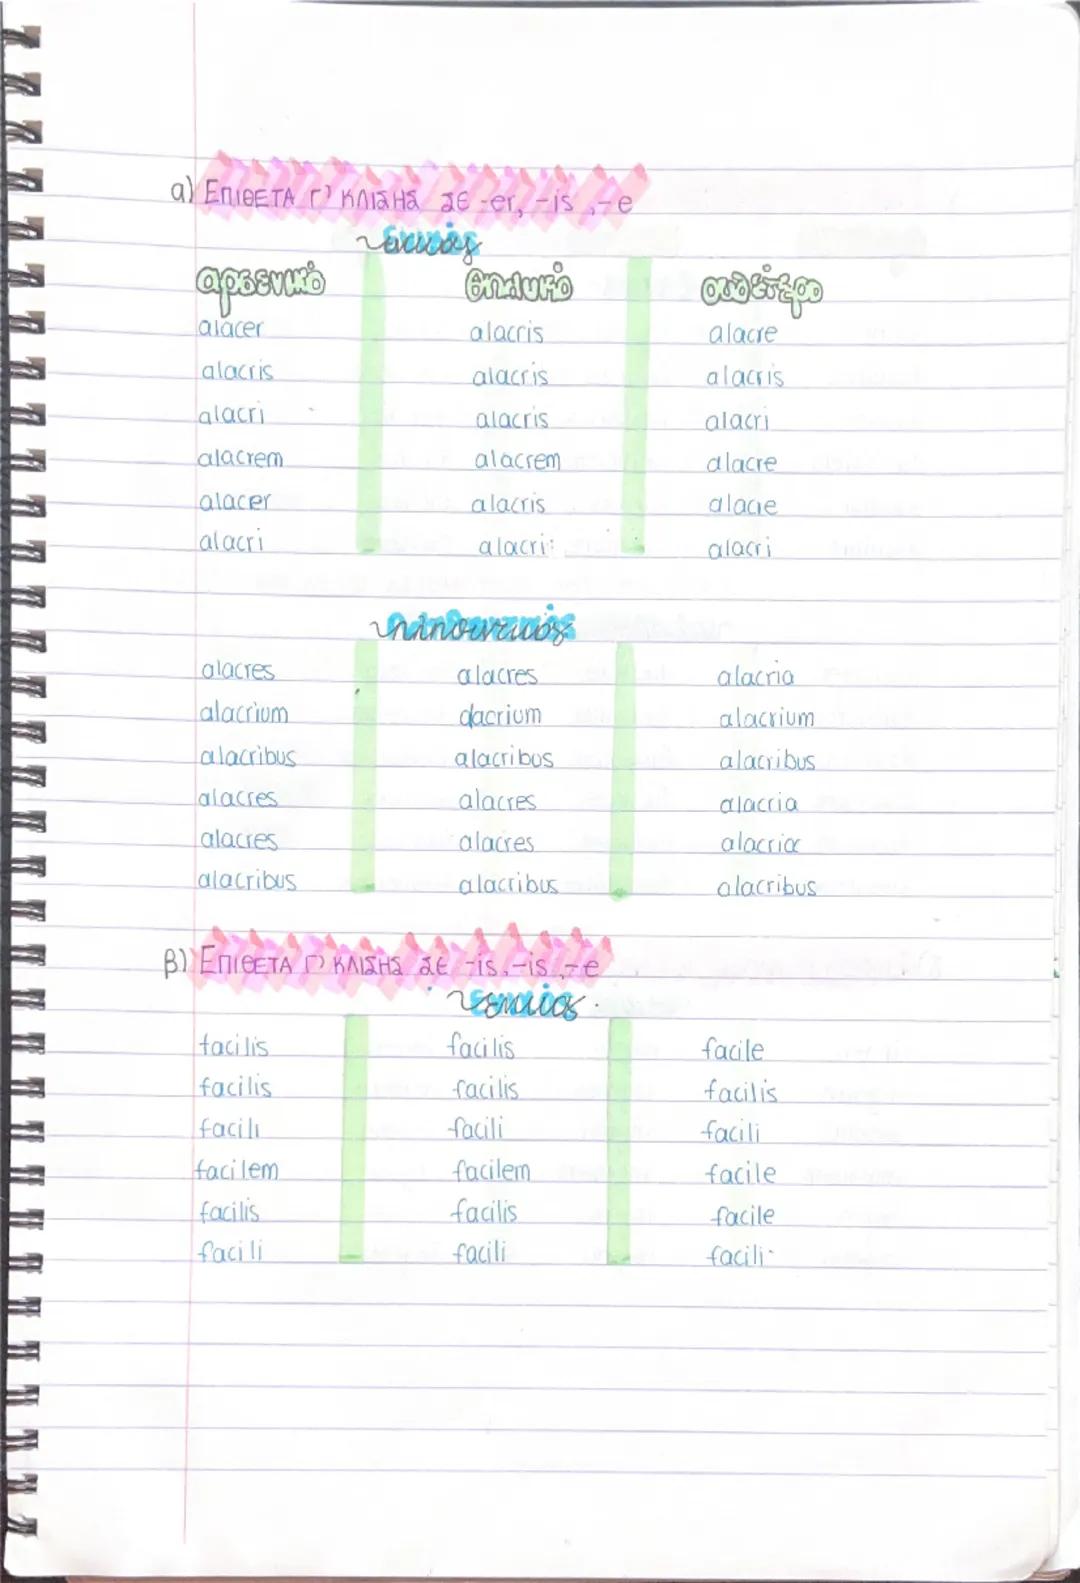 α) ΕΠΙΘΕΤΑ Γ' ΚΛΙΣΗΣ ΣΕ -er, -is, -e
Ενικός
αρσενικό θηλυκό ουδέτερο
alacer alacris alacre
alacris alacris alacris
alacri alacris alacri
alacrem alacrem alacre
alacer alacris alacre
alacri alacri alacri
Πληθυντικός
alacres alacres alacria
alacrium alacrium alacrium
alacribus alacribus alacribus
alacres alacres alacria
alacres alacres alacria
alacribus alacribus alacribus
β) ΕΠΙΘΕΤΑ Γ' ΚΛΙΣΗΣ ΣΕ -is, -is, -e
Ενικός
facilis facilis facile
facilis facilis facilis
facili facili facili
facilem facilem facile
facilis facilis facile
facili facili facili